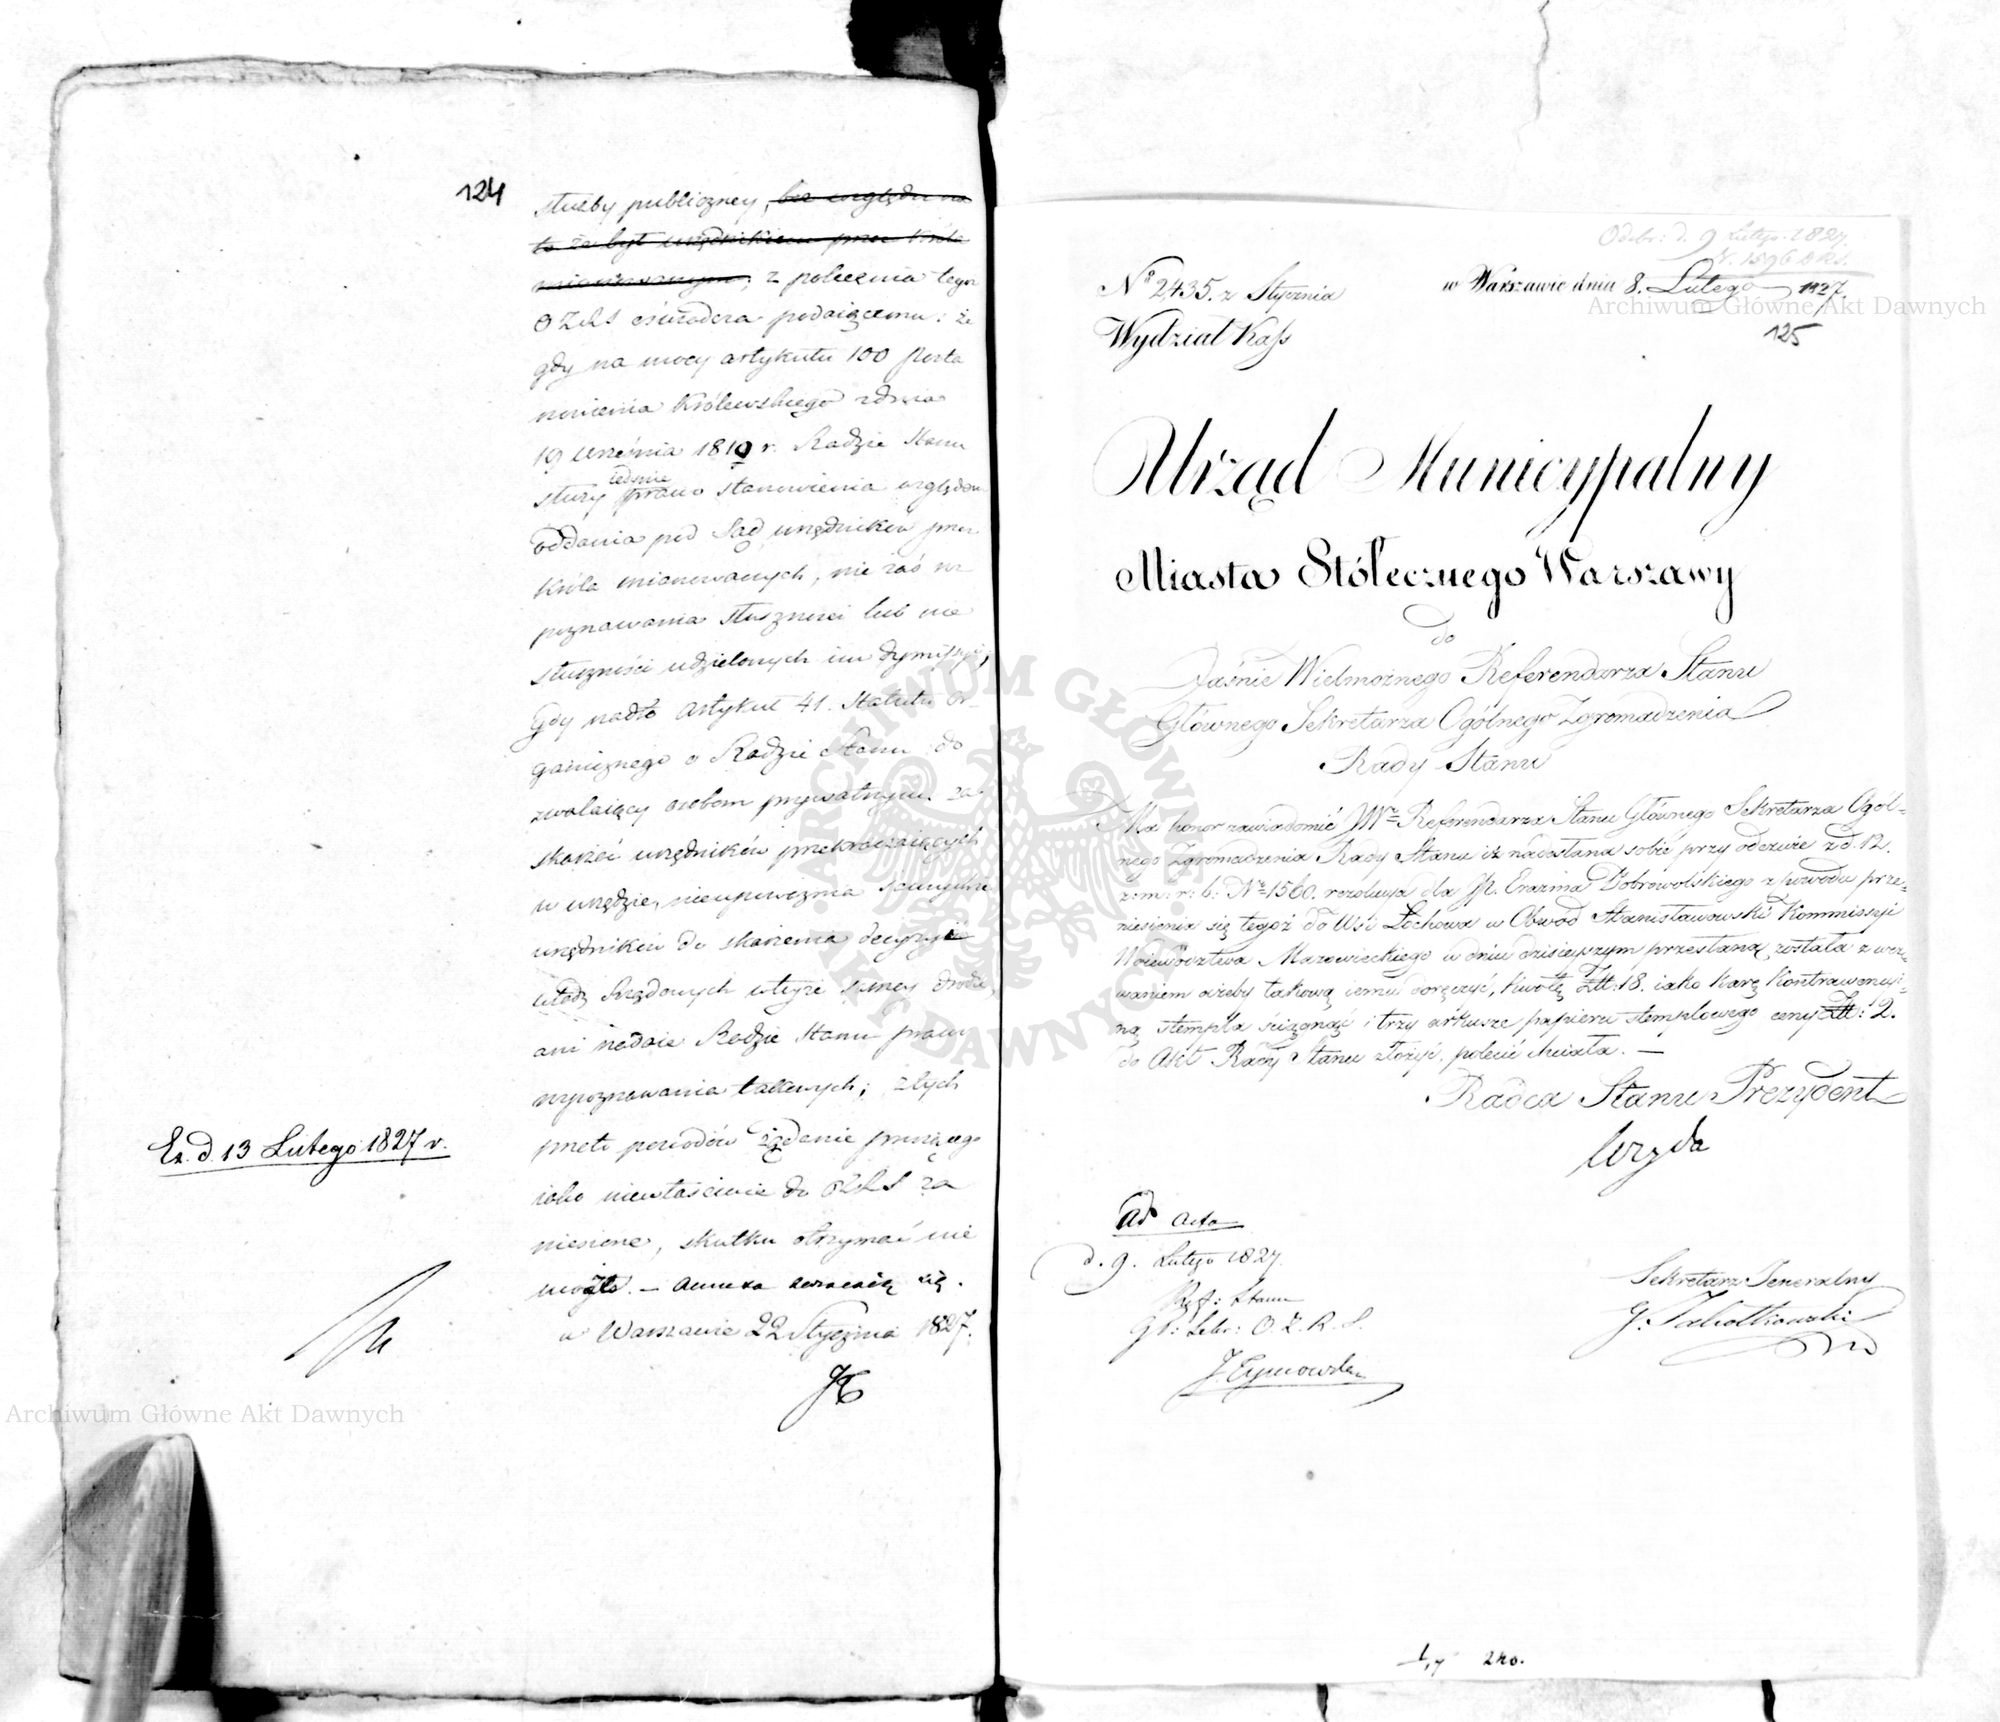 124
służby publiczney, bez względu na
to że był urzędnikiem przez Króla
mianowanym; z polecenia tegoż
OZRS oświadcza podaiącemu: że
gdy na mocy artykułu 100 Posta
nowienia Królewskiego z dnia
19 Września 1810 r. Radzie Stanu
służy iedynie prawo stanowienia względem
oddania pod Sąd urzędników przez
Króla mianowanych, nie zaś roz
poznawania słuszności lub nie
słuszności udzielonych im dymissyi,
Gdy nadto artykuł 41. Statutu or-
ganicznego o Radzie Stanu do
zwalaiący osobom prywatnym za
skarżać urzędników przekraczaiących
w urzędzie, nieupoważnia samychże
urzędników do skarżenia decyzyi
władz Rządowych w teyże samey drodze,
ani nadaie Radzie Stanu prawa
rozpoznawania takowych; z tych
przeto powodów żądanie proszącego
iako niewłaściwie do OZRS za
niesione, skutku otrzymać nie
mogło. — Annexa zwracaią się.
w Warszawie 22 Stycznia 1827.
Ex. d. 13 Lutego 1827 r.
Odebr: d. 9 Lutego 1827.
N. 1596 OZRS.
Nº 2,435. z Stycznia
w Warszawie dnia 8. Lutego 1827.
Wydział Kass
125
Urząd Municypalny
Miasta Stółecznego Warszawy
do
Jaśnie Wielmożnego Referendarza Stanu
Głównego Sekretarza Ogólnego Zgromadzenia
Rady Stanu
Ma honor zawiadomić JWº Referendarza Stanu Głównego Sekretarza Ogól-
nego Zgromadzenia Rady Stanu iż nadesłana sobie przy odezwie z d. 12.
z: m: r: b: Nº 1560. rezolucya dla JP. Erazma Dobrowolskiego z powodu prze-
niesienia się tegoż do Wsi Łochowa w Obwód Stanisławowski Kommissyi
Woiewództwa Mazowieckiego w dniu dzisieyszym przesłaną została z wez-
waniem ażeby takową iemu doręczyć, kwotę Złt: 18. iako karę Kontrawency-
ną stempla ściągnąć i trzy arkusze papieru stemplowego ceny Złt: 2.
do Akt Rady Stanu złożyć, polecić chciała. —
Radca Stanu Prezydent
Woyda
ad acta
d. 9. Lutego 1827.
Ref: Stanu
Gł: Sekr: O. Z. R. S.
J. Tymowski
Sekretarz Jeneralny
G. Jahołkowski
240.
Archiwum Główne Akt Dawnych
Archiwum Główne Akt Dawnych
ARCHIWUM GŁÓWNE AKT DAWNYCH